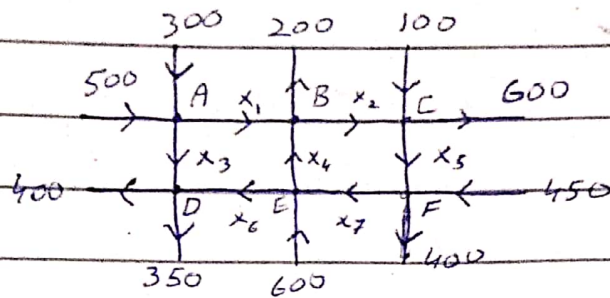 300 200 100
500 A x₁ B x₂ C 600
x₃ x₄ x₅
400 D x₆ E x₇ F 450
350 600 400